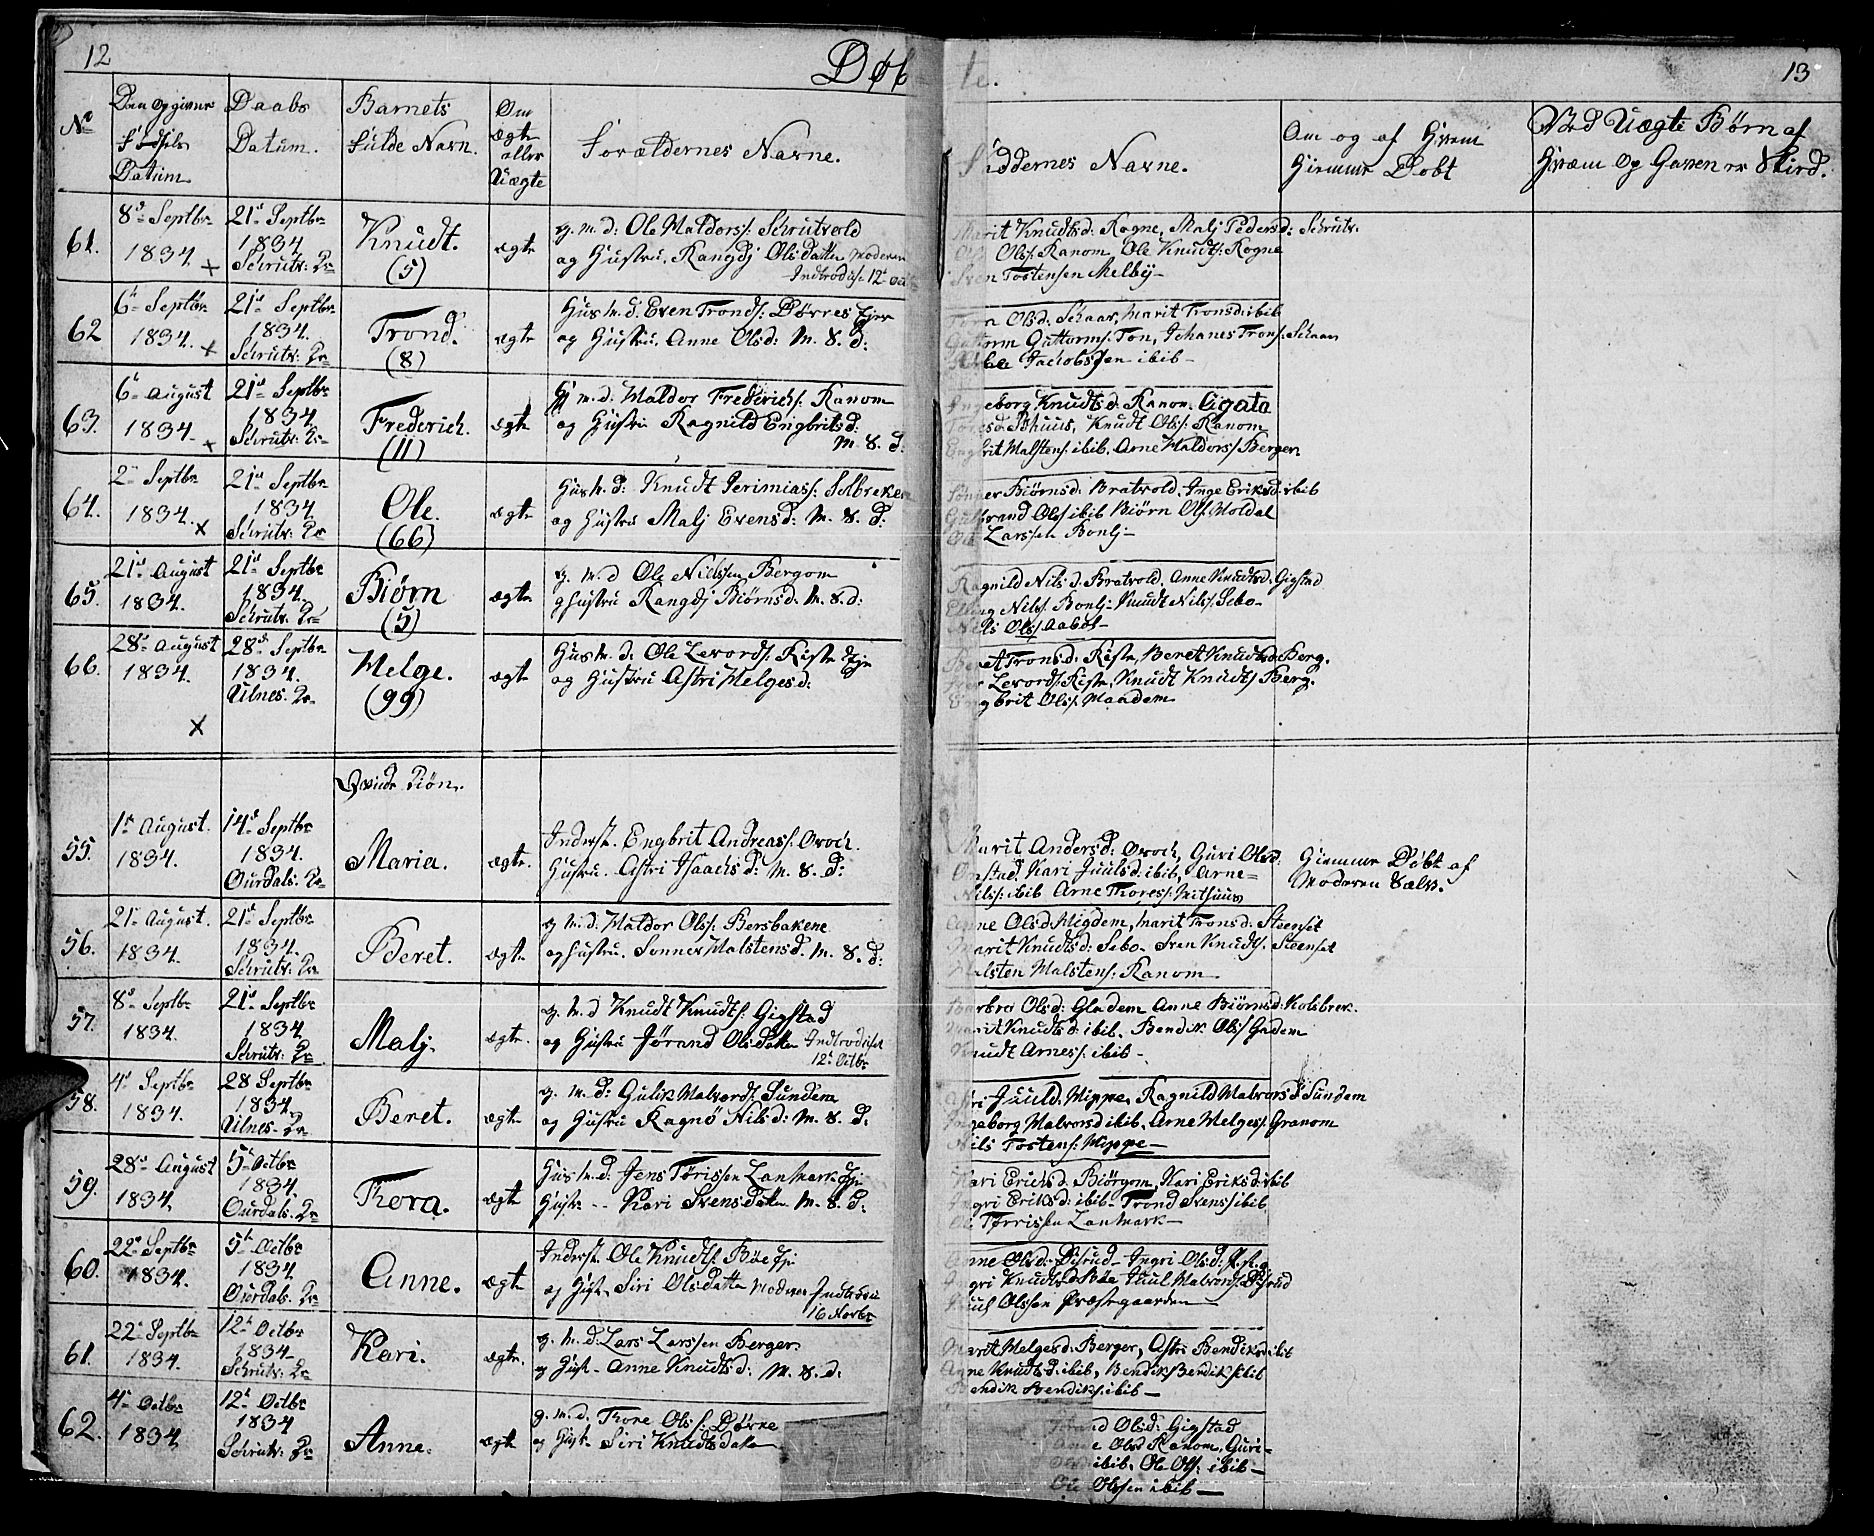 12
Døbte.
13
No
Den opgivne Fødsels Datum
Daabs Datum.
Barnets fulde Navn.
Om ægte eller Uægte
Forældernes Navne.
Faddernes Navne.
Om og af Hvem Hiemme Døbt
Ved Uægte Børn af Hvem og Gaven er Skird.
61.
8de Septbr 1834.
21de Septbr 1834 Schrutv: K
Knudt. (5)
ægte
g. m. d: Ole Haldors: Schrutvold
og Hustru. Rangdj Olsdatter Moderen
Introdus. 12t Oct
Marit Knudtsd: Rogne, Malj Pedersd: Schrutv.
Ole Olss: Ranom, Ole Knudts: Rogne
Sven Tostensen Melbÿ
62
6t Septbr 1834.
21de Septbr 1834. Schrutv: K
Trond. (8)
ægte
Husm. d. Even Tronds: Dørres Eje
og Hustru. Anne Olsd: M. 8. d:
Tora Olsd: Schaar, Marit Tronsd: ibib
Guttorm Guttorms: Ton, Johanes Trons: Schaar
Jacobsen ibib
63.
6t August 1834.
21de Septbr 1834 Schrutv: K
Frederich. (11)
ægte
g m. d: Haldor Frederichs: Ranom
og Hustru Ragnild Engbritsd:
M. 8. d:
Ingeborg Knudtsd: Ranom. Agata
Knudt Olss: Ranom
Engbrit Halstens: ibib. Arne Haldors/ Berger.
64.
2de Septbr 1834.
21de Septbr 1834 Schrutv: K
Ole. (66)
ægte
Husm. d: Knudt Jerimias: Selbreke
og Hustru Malj Evensd: M. 8. d:
Sønner Biørnsd: Bratvold. Inge Eriksd: ibib
Gulbrand Olss ibib Biørn Ols. Moldal
Ole Larssen Bonlj
65.
21de August 1834.
21de Septbr 1834. Schrutv: K
Biørn (5)
ægte
g. m. d Ole Nielssen Bergom
g Hustru Rangdj Biørnsd: M. 8. d:
Ragnild Nilsd. Bratvold. Anne Knudtsd. Gigstad
Elling Nils: Bonlj Knudt Nils: Sebo
Nils Ols/ Aabol
66.
28de August 1834.
28de Septbr 1834. Ulnes. K
Helge. (99)
ægte
Husm. d. Ole Levords. Riste Eje
og Hustru Astri Helgesd:
Beret Tronsd: Riste, Beret Knudtsd: Berg.
Levords: Riste, Knudt Knudts Berg.
Engbrit Olss: Maadem
Qvinde Kiøn.
55.
1te August. 1834.
14de Septbr 1834. Ourdals: K
Maria.
ægte.
Inderst. Engbrit Andreas: Ovroch.
Hustru. Astri Isaachsd: M. 8. d:
Marit Andersd: Ovroch, Guri Olsd.
Onstad, Kari Juulsd: ibib, Arne
Nils: ibib Arne Thores:
Hiemme Døbt af Moderen Selv.
56.
21de August. 1834.
21de Septbr 1834. Schrutv: K
Beret.
ægte
g m. d. Haldor Olss: Bersbakene
og Hustru. Sonner Halstensd. M. 8. d:
Anne Olsd Migdem, Marit Tronsd: Steenset
Marit Knudtsd: Sebo. Sven Knudts. Steenset
Halsten Halstens: Ranom
57.
8de Septbr 1834.
21de Septbr 1834. Schrutv: K
Malj.
ægte.
g. m. d Knudt Knudts: Gigstad
og Hustru Jørand Olsdatter Introduset
12t Octbr
Barbra Olsd: Gladem Anne Biørnsd: Kolsbrek.
Marit Knudtsd: ibib, Bendik Ols/ Gadem
Knudt Arness: ibib
58.
4de Septbr 1834.
28 Septbr 1834. Ulnes. K
Beret.
ægte
g. m. d: Gulik Halvords: Sundem
og Hustru Ragnø Nilsd: M. 8. d:
Juuld: Hippe, Ragnild Halvorsd Sundem
Ingeborg Halvorsd ibib. Arne Helges/ Granom
Nils Tostens: Hippe
59.
28de August 1834.
5t Octbr 1834. Ourdals: K
Thora.
ægte
Husm. d: Jens Tørissen Lanmark Eje
Hustr. Kari Svensdatter M. 8. d:
Kari Erichsd: Biørgom, Kari Eriksd: ibib
Ingri Eriksd: ibib Trond Svens: ibib
Ole Tørrissen Lanmark
60.
22de Septbr 1834.
5t Octbr 1834 Ourdals. K
Anne.
ægte
Inderst. Ole Knudts. Bøe Eje
og Hust. Siri Olsdatter Moderen Introdu
16 Novbr
Anne Olsd: Disrud Ingri Olsd:
Ingri Knudtsd Bøe Juul Halvords: Disrud
Juul Olssen Præstegaarden
61.
22de Septbr 1834.
12t Octbr 1834 Schrutv: K
Kari.
ægte.
g. m. d. Lars Larssen Berger
og Hust. Anne Knudtsd: M. 8. d:
Marit Helgesd: Berger, Astri Bendiksd ibib
Anne Knudtsd: ibib, Bendik Bendiks ibib
Bendik Bendiks: ibib
62.
4t Octbr 1834
12t Octbr 1834 Schrutv: K
Anne.
ægte
g. m. d. Thore Olss: Dørre
og Hust. Siri Knudtsdatter
Olsd: Gigstad
Olsd Ranom, Guri
ibib, Ole Ols: ibib
Ole Olssen ibib